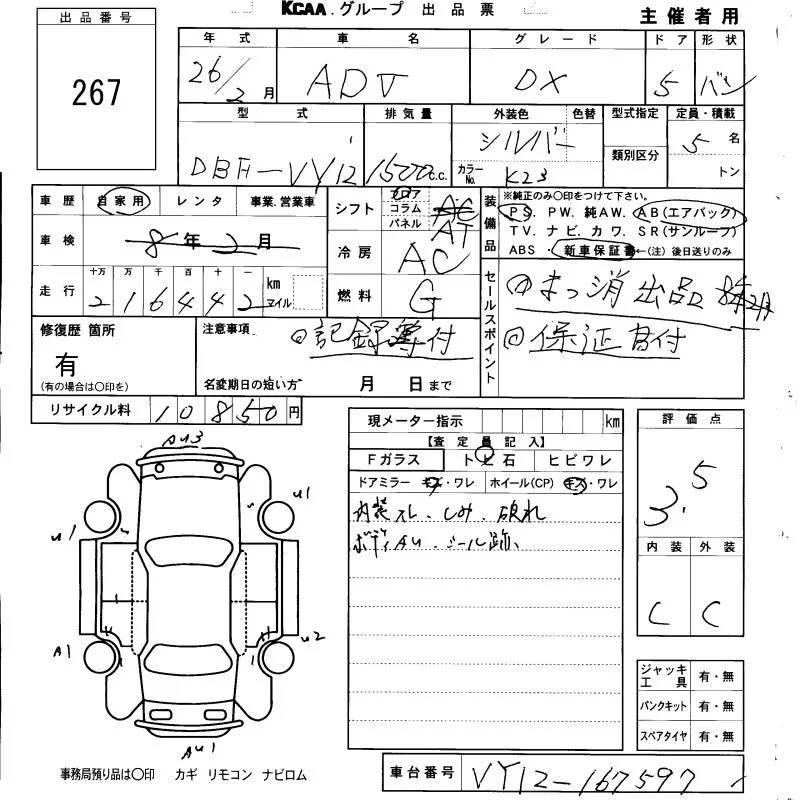 KCAA.グループ 出品票
主催者用
出品番号
267
年式 車名 グレード ドア 形状
26/2月 ADV DX 5 バン
型式 排気量 外装色 色替 型式指定 定員・積載
DBF-VY12 1500c.c. シルバー 5名
カラーNo. K23 類別区分 トン
車歴 自家用 レンタ 事業.営業車
車検 8年2月
走行 十万 万 千 百 十 一
216442 km マイル
シフト フロア コラム パネル AC AT
冷房 AC
燃料 G
装備品
※純正のみ〇印をつけて下さい。
PS. PW. 純AW. AB(エアバッグ)
TV. ナビ. カワ. SR(サンルーフ)
ABS ・ 新車保証書 ←(注)後日送りのみ
セールスポイント
◎まっ消出品 8年2月
◎保証書付
修復歴 箇所
有
(有の場合は〇印を)
注意事項
◎記録簿付
名変期日の短い方 月 日まで
リサイクル料 10850円
現メーター指示 km
【査定員記入】
Fガラス トビ石 ヒビワレ
ドアミラー キズ・ワレ ホイール(CP) キズ・ワレ
内装スレ.しみ.破れ
ボディAU.シール跡、
評価点
3.5
内装 外装
C C
AU3
U1
U1
A1
U2
AU1
ジャッキ 工具 有・無
パンクキット 有・無
スペアタイヤ 有・無
事務局預り品は〇印 カギ リモコン ナビロム
車台番号 VY12-167597